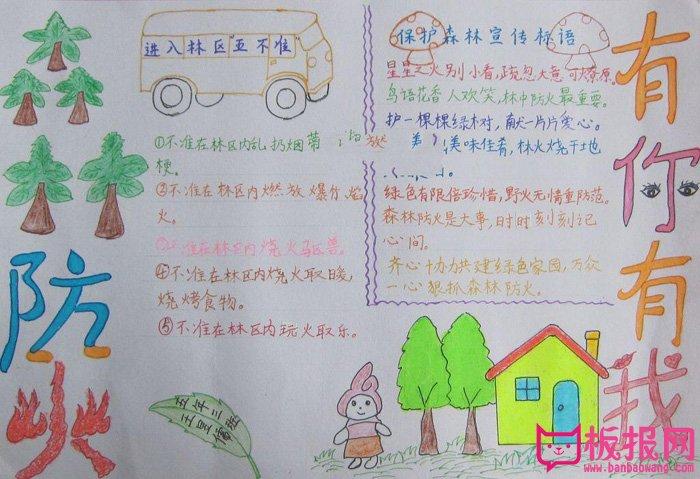 防火
有你有我
进入林区"五不准"
①不准在林区内乱扔烟蒂
梗。
②不准在林区内燃放爆竹、焰
火。
③不准在林区内烧火驱兽。
④不准在林区内烧火取暖,
烧烤食物。
⑤不准在林区内玩火取乐。
保护森林宣传标语
星星之火别小看,疏忽大意可燎原。
鸟语花香人欢笑,林中防火最重要。
护一棵棵绿树,献一片片爱心。
美味佳肴,林火烧干地
绿色有限倍珍惜,野火无情重防范。
森林防火是大事,时时刻刻记
心间。
齐心协力共建绿色家园,万众
一心狠抓森林防火。
五年二班
板报网
www.banbaowang.com